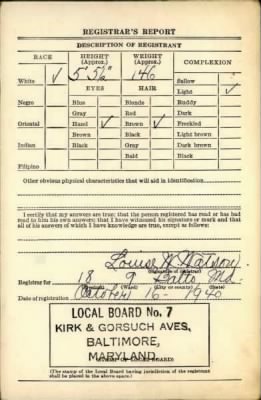 REGISTRAR'S REPORT
DESCRIPTION OF REGISTRANT
RACE HEIGHT (Approx.) WEIGHT (Approx.) COMPLEXION
White ✓ 5' 5½" 146 Sallow
EYES HAIR Light ✓
Negro Blue Blonde Ruddy
Gray Red Dark
Oriental Hazel ✓ Brown ✓ Freckled
Brown Black Light brown
Indian Black Gray Dark brown
Bald Black
Filipino
Other obvious physical characteristics that will aid in identification
I certify that my answers are true; that the person registered has read or has had
read to him his own answers; that I have witnessed his signature or mark and that
all of his answers of which I have knowledge are true, except as follows:
Louise Watson
(Signature of registrar)
Registrar for 18 9 Balto Md.
(Precinct) (Ward) (City or county) (State)
Date of registration October 16 - 1940
LOCAL BOARD No. 7
KIRK & GORSUCH AVES,
BALTIMORE,
MARYLAND
(STAMP OF LOCAL BOARD)
(The stamp of the Local Board having jurisdiction of the registrant
shall be placed in the above space.)